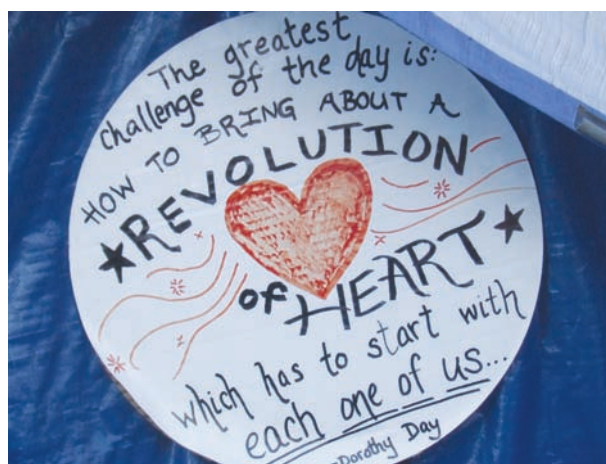 The greatest
challenge of the day is:
HOW TO BRING ABOUT A
★REVOLUTION
of HEART★
which has to start with
each one of us...
-Dorothy Day